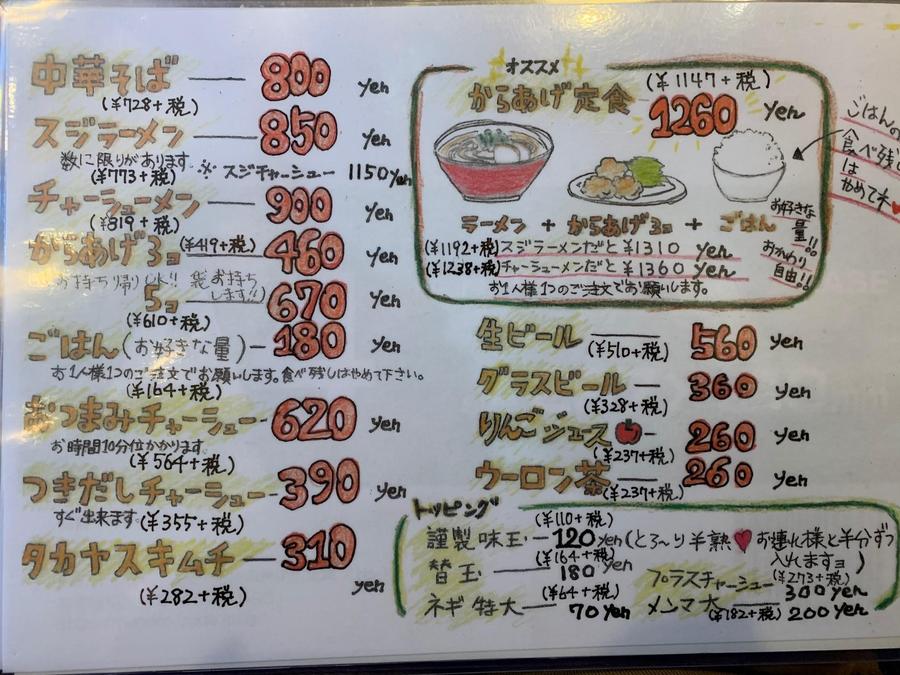 中華そば 800 yen
(¥728+税)
スジラーメン 850 yen
数に限りがあります。
(¥773+税) ※ スジチャーシュー 1150yen
チャーシューメン 900 yen
(¥819+税)
からあげ3ヨ (¥419+税) 460 yen
お持ち帰りOK!! 袋お持ちします!!
5ヨ 670 yen
(¥610+税)
ごはん(お好きな量) 180 yen
お1人様1つのご注文でお願いします。食べ残しはやめて下さい。
(¥164+税)
おつまみチャーシュー 620 yen
お時間10分位かかります。
(¥564+税)
つきだしチャーシュー 390 yen
すぐ出来ます。(¥355+税)
タカヤスキムチ 310 yen
(¥282+税)
オススメ
からあげ定食 (¥1147+税)
1260 yen
ごはんの
食べ残し
は
やめてネ♥
ラーメン + からあげ3ヨ + ごはん
お好きな量!!
おかわり自由!!
(¥1192+税)スジラーメンだと ¥1310 yen
(¥1238+税)チャーシューメンだと ¥1360 yen
お1人様1つのご注文でお願いします。
生ビール 560 yen
(¥510+税)
グラスビール 360 yen
(¥328+税)
りんごジュース 260 yen
(¥237+税)
ウーロン茶 260 yen
(¥237+税)
トッピング
(¥110+税)
謹製味玉 120 yen (とろ~り半熟♥お連れ様と半分ずつ入れますヨ)
(¥164+税)
替玉 180 yen
(¥273+税)
プラスチャーシュー 300 yen
(¥64+税)
ネギ特大 70 yen
メンマ大 (¥182+税) 200 yen